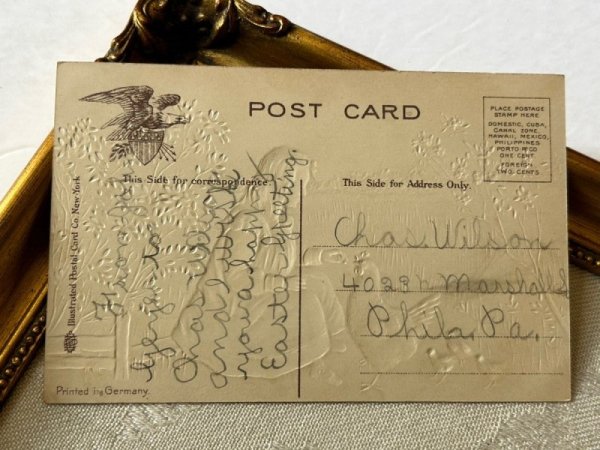 POST CARD
PLACE POSTAGE
STAMP HERE
DOMESTIC, CUBA,
CANAL ZONE,
HAWAII, MEXICO,
PHILIPPINES
PORTO RICO
ONE CENT
FOREIGN
TWO CENTS
This Side for correspondence.
This Side for Address Only.
Illustrated Postal Card Co. New York
From
to
Chas. Wilson
and I wish
you a happy
Easter Greeting.
Chas. Wilson
4028 N Marshall S
Phila. Pa.
Printed in Germany.